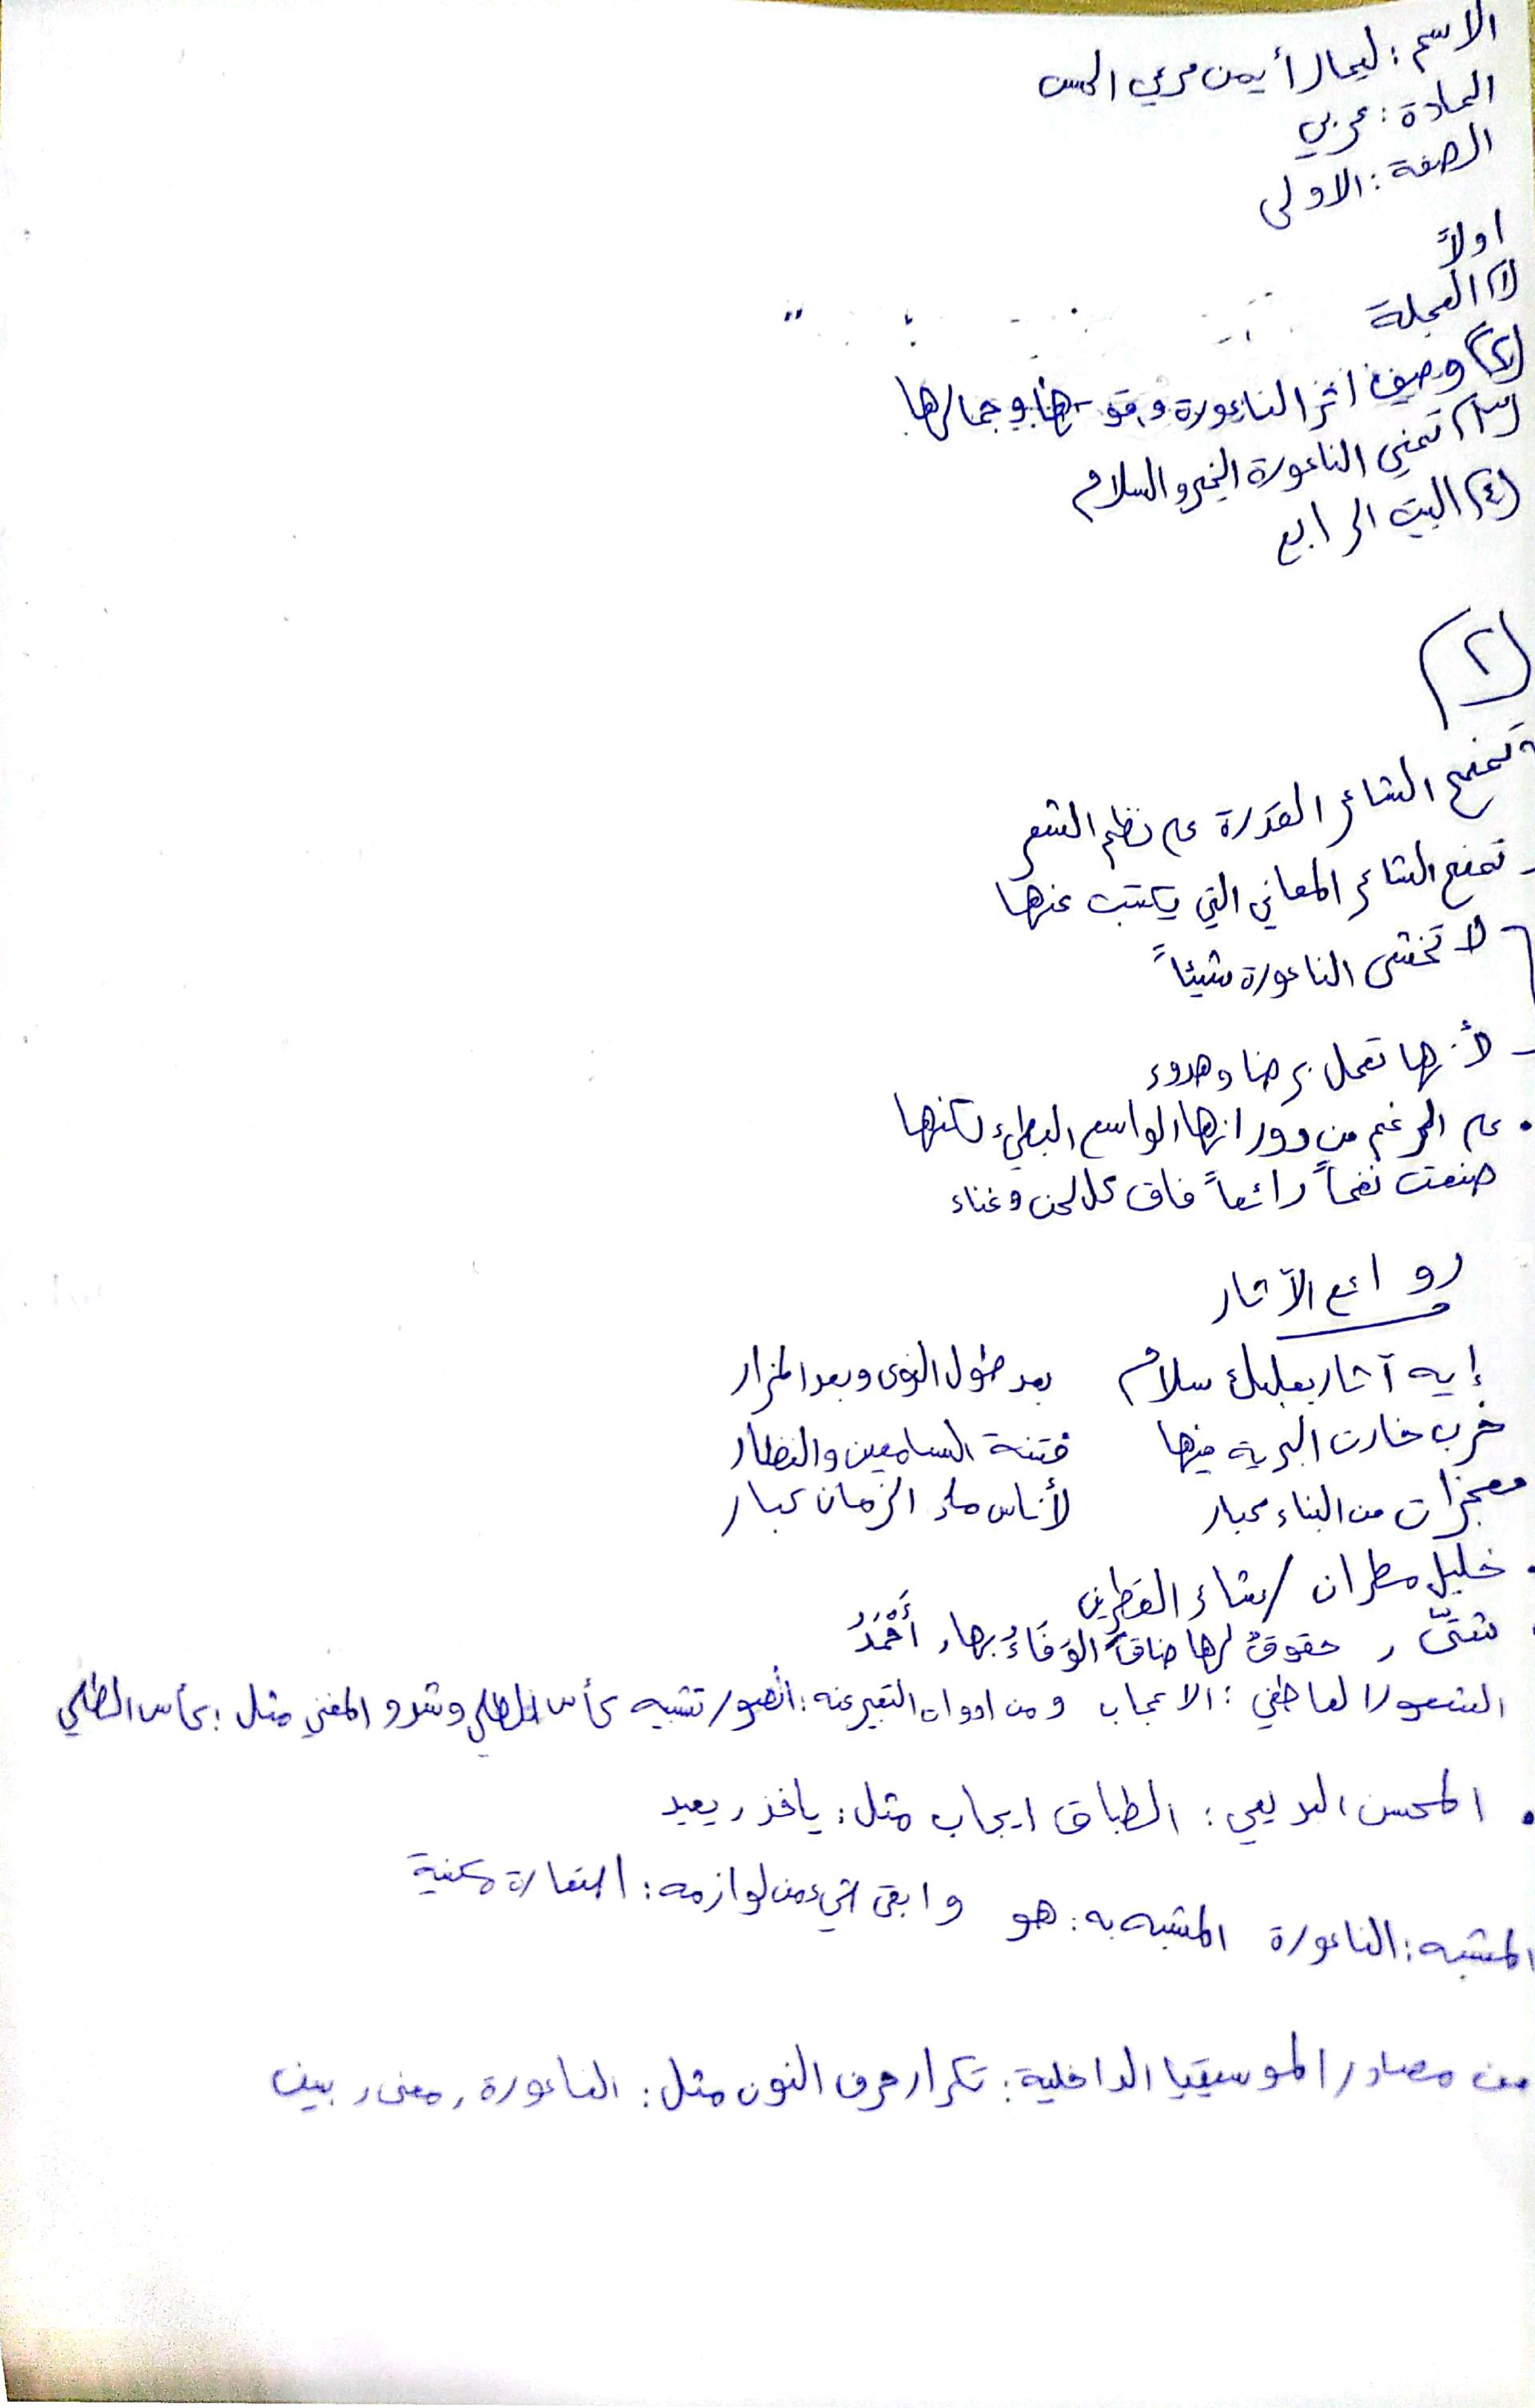 الاسم : ليمار أيمن مرعي الحسن
المادة : عربي
الصفحة : الاولى
اولاً
(١) العجلة
(٢) وصف اثر الناعورة وقوتها وجمالها
(٣) تمني الناعورة الخير والسلام
(٤) البيت الرابع
(٢)
تمنح الشاعر القدرة على نظم الشعر
- تمنح الشاعر المعاني التي يكتب عنها
- لا تخشى الناعورة شيئاً
- لأنها تعمل برضا وهدوء
• على الرغم من دورانها الواسع البطيء لكنها
صنعت نغماً رائعاً فاق كل لحن وغناء
روائع الآثار
إيه آثار بعلبك سلام بعد طول النوى وبعد المزار
خرب حارت البرية فيها فتنة السامعين والنظار
معجزات من البناء كبار لأناس ملء الزمان كبار
• خليل مطران / شاعر القطرين
• شتّى ، حقوقٌ لها ضاق الوَفَاءُ بها، أَحْمَدُ
الشعور العاطفي : الاعجاب ومن ادوات التعبير عنه : الصور تشبيه كأس الطلي وشدو المغني مثل : كأس الطلي
• المحسن البديعي : الطباق ايجاب مثل : يأخذ ، يعيد
المشبه : الناعورة المشبه به : هو وابقى شيء من لوازمه : استعارة مكنية
من مصادر الموسيقيا الداخلية : تكرار حرف النون مثل : الناعورة ، معنى ، بين